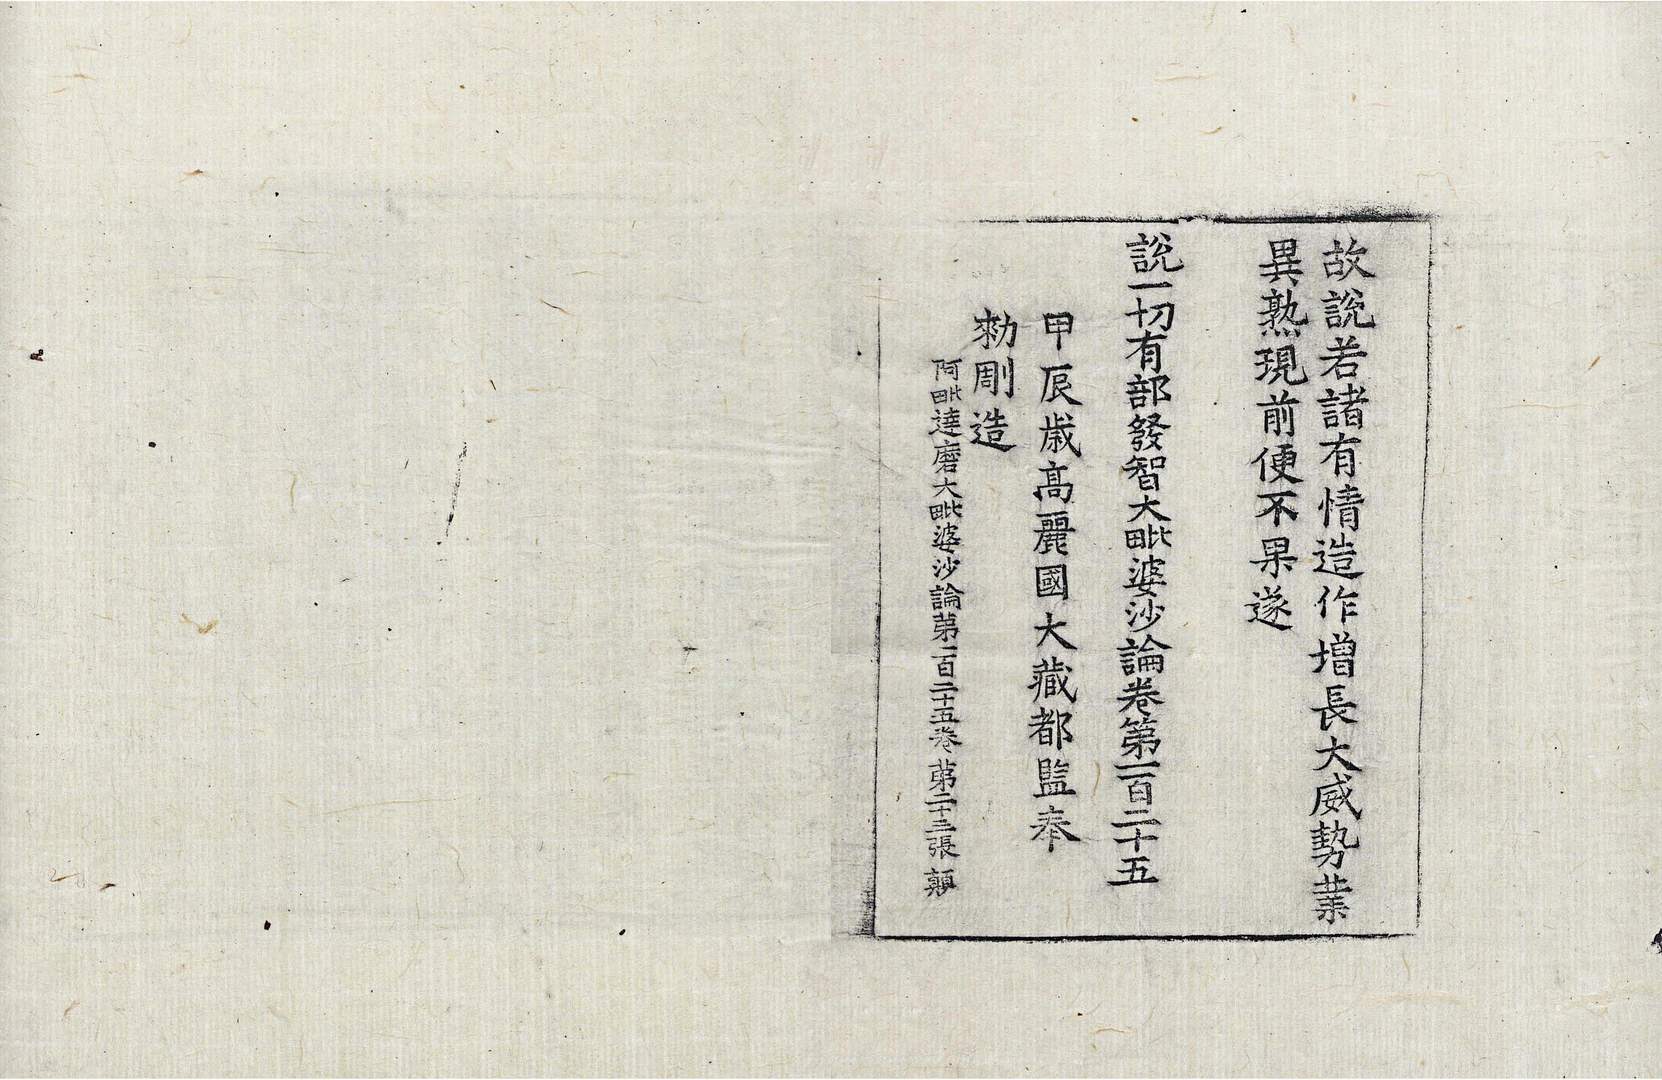 故說若諸有情造作增長大威勢業
異熟現前便不果遂
說一切有部發智大毗婆沙論卷第一百二十五
甲辰歲高麗國大藏都監奉
勑彫造
阿毗達磨大毗婆沙論第一百二十五卷 第二十三張 顚